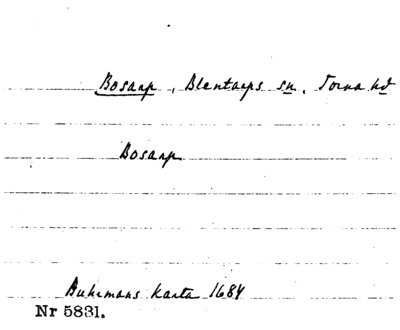 Bosarp, Blentarps sn, Torna hd
Bosarp
Buhrmans karta 1684
Nr 5831.